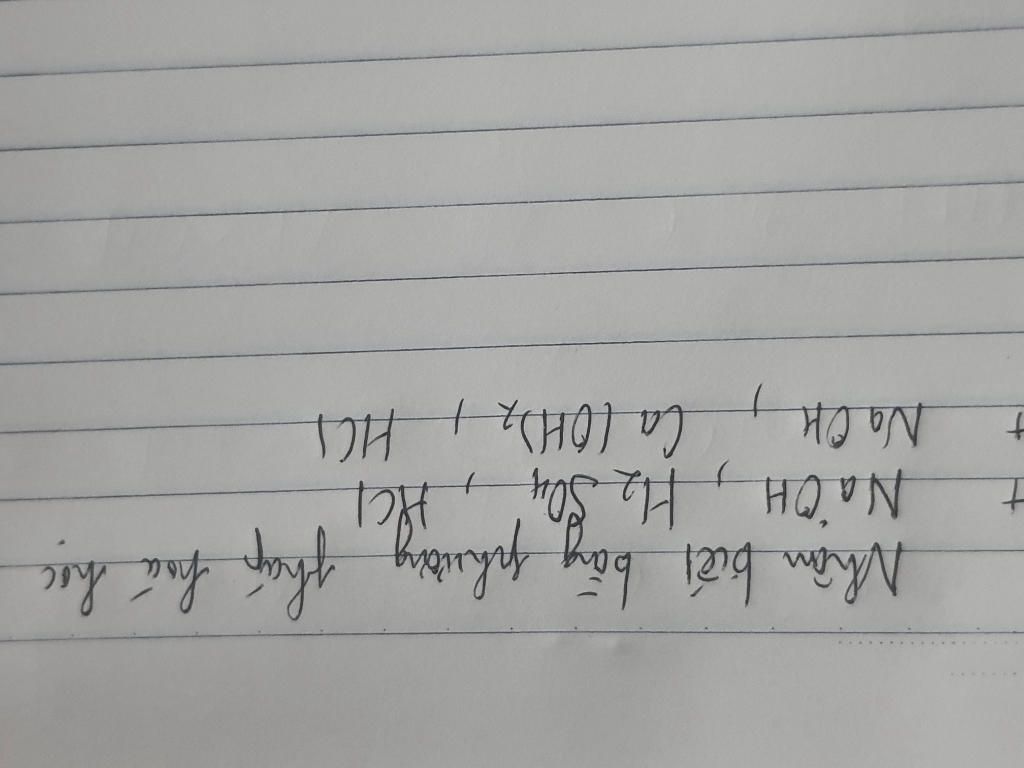 Nhận biết bằng phương pháp hoá học
+ NaOH, H₂SO₄, HCl
+ NaOH, Ca(OH)₂, HCl